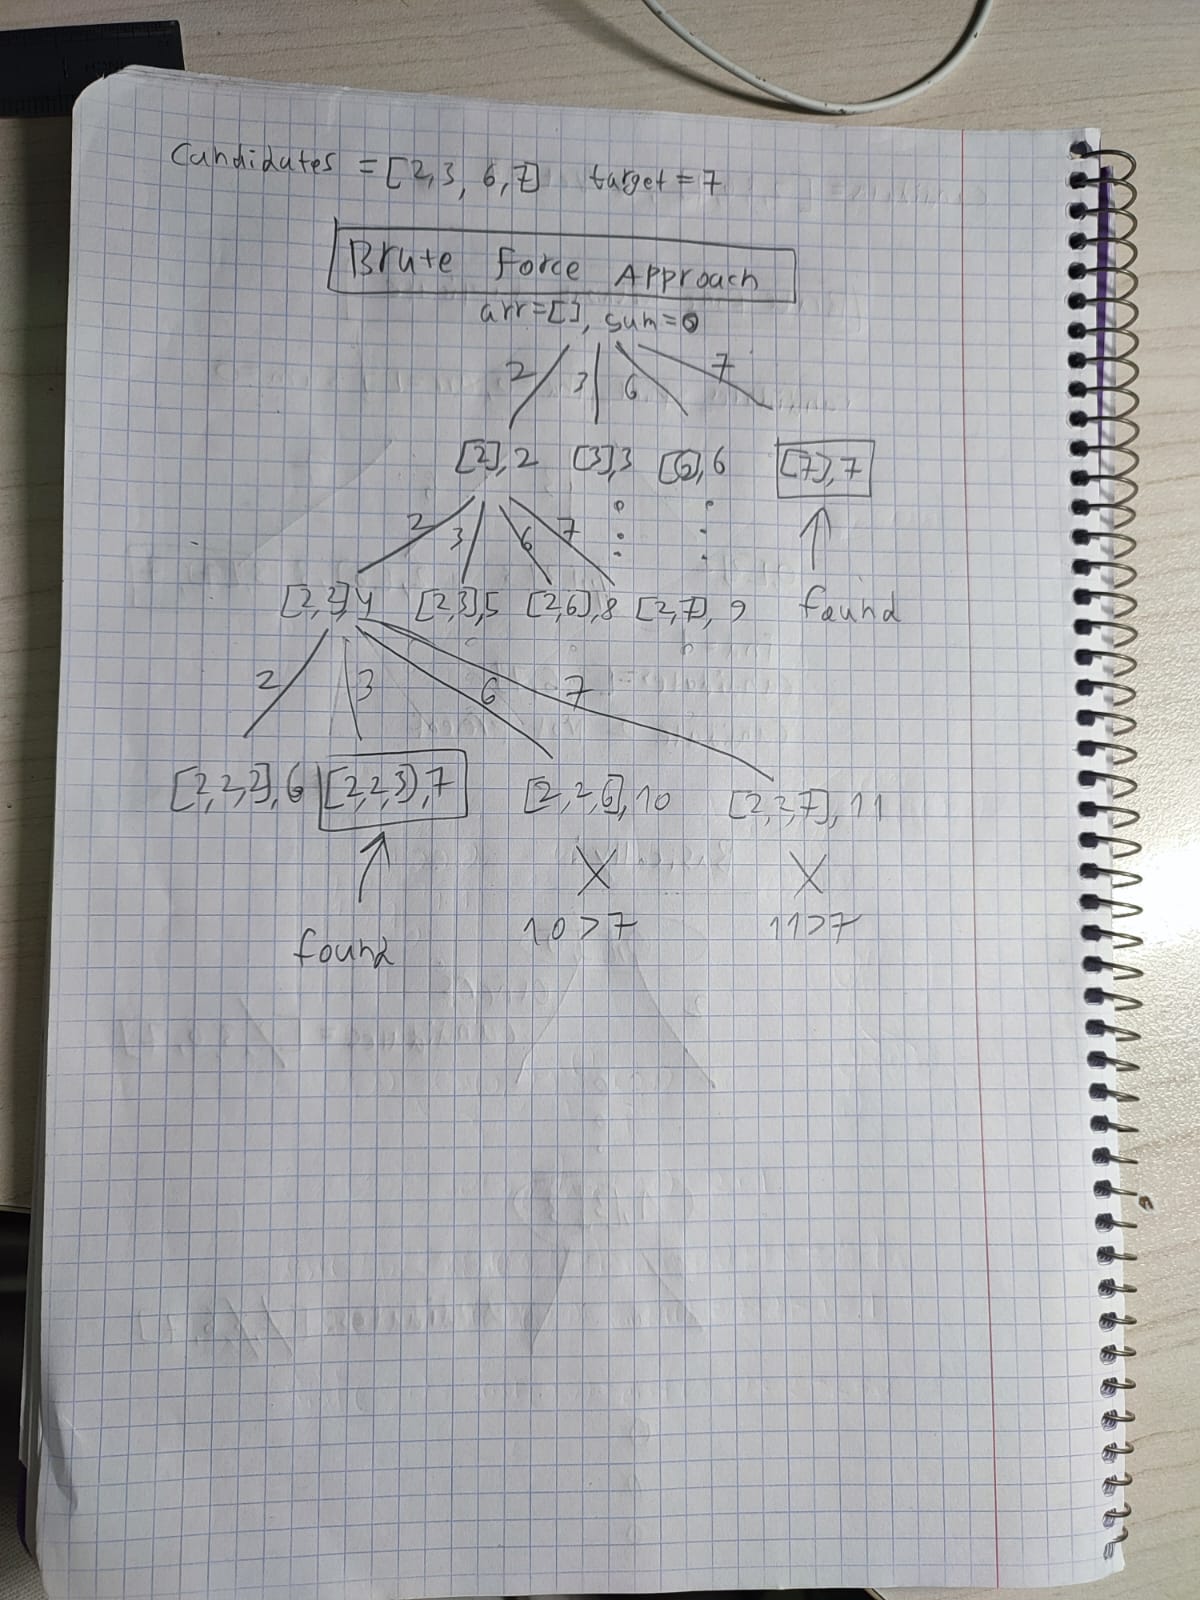 Candidates = [2,3, 6,7] target = 7
Brute Force Approach
arr=[], sum=0
2 3 6 7
[2],2 [3],3 [6],6 [7],7
2 3 6 7
[2,2],4 [2,3],5 [2,6],8 [2,7], 9 found
2 3 6 7
[2,2,2],6 [2,2,3],7 [2,2,6],10 [2,2,7],11
X X
10>7 11>7
found